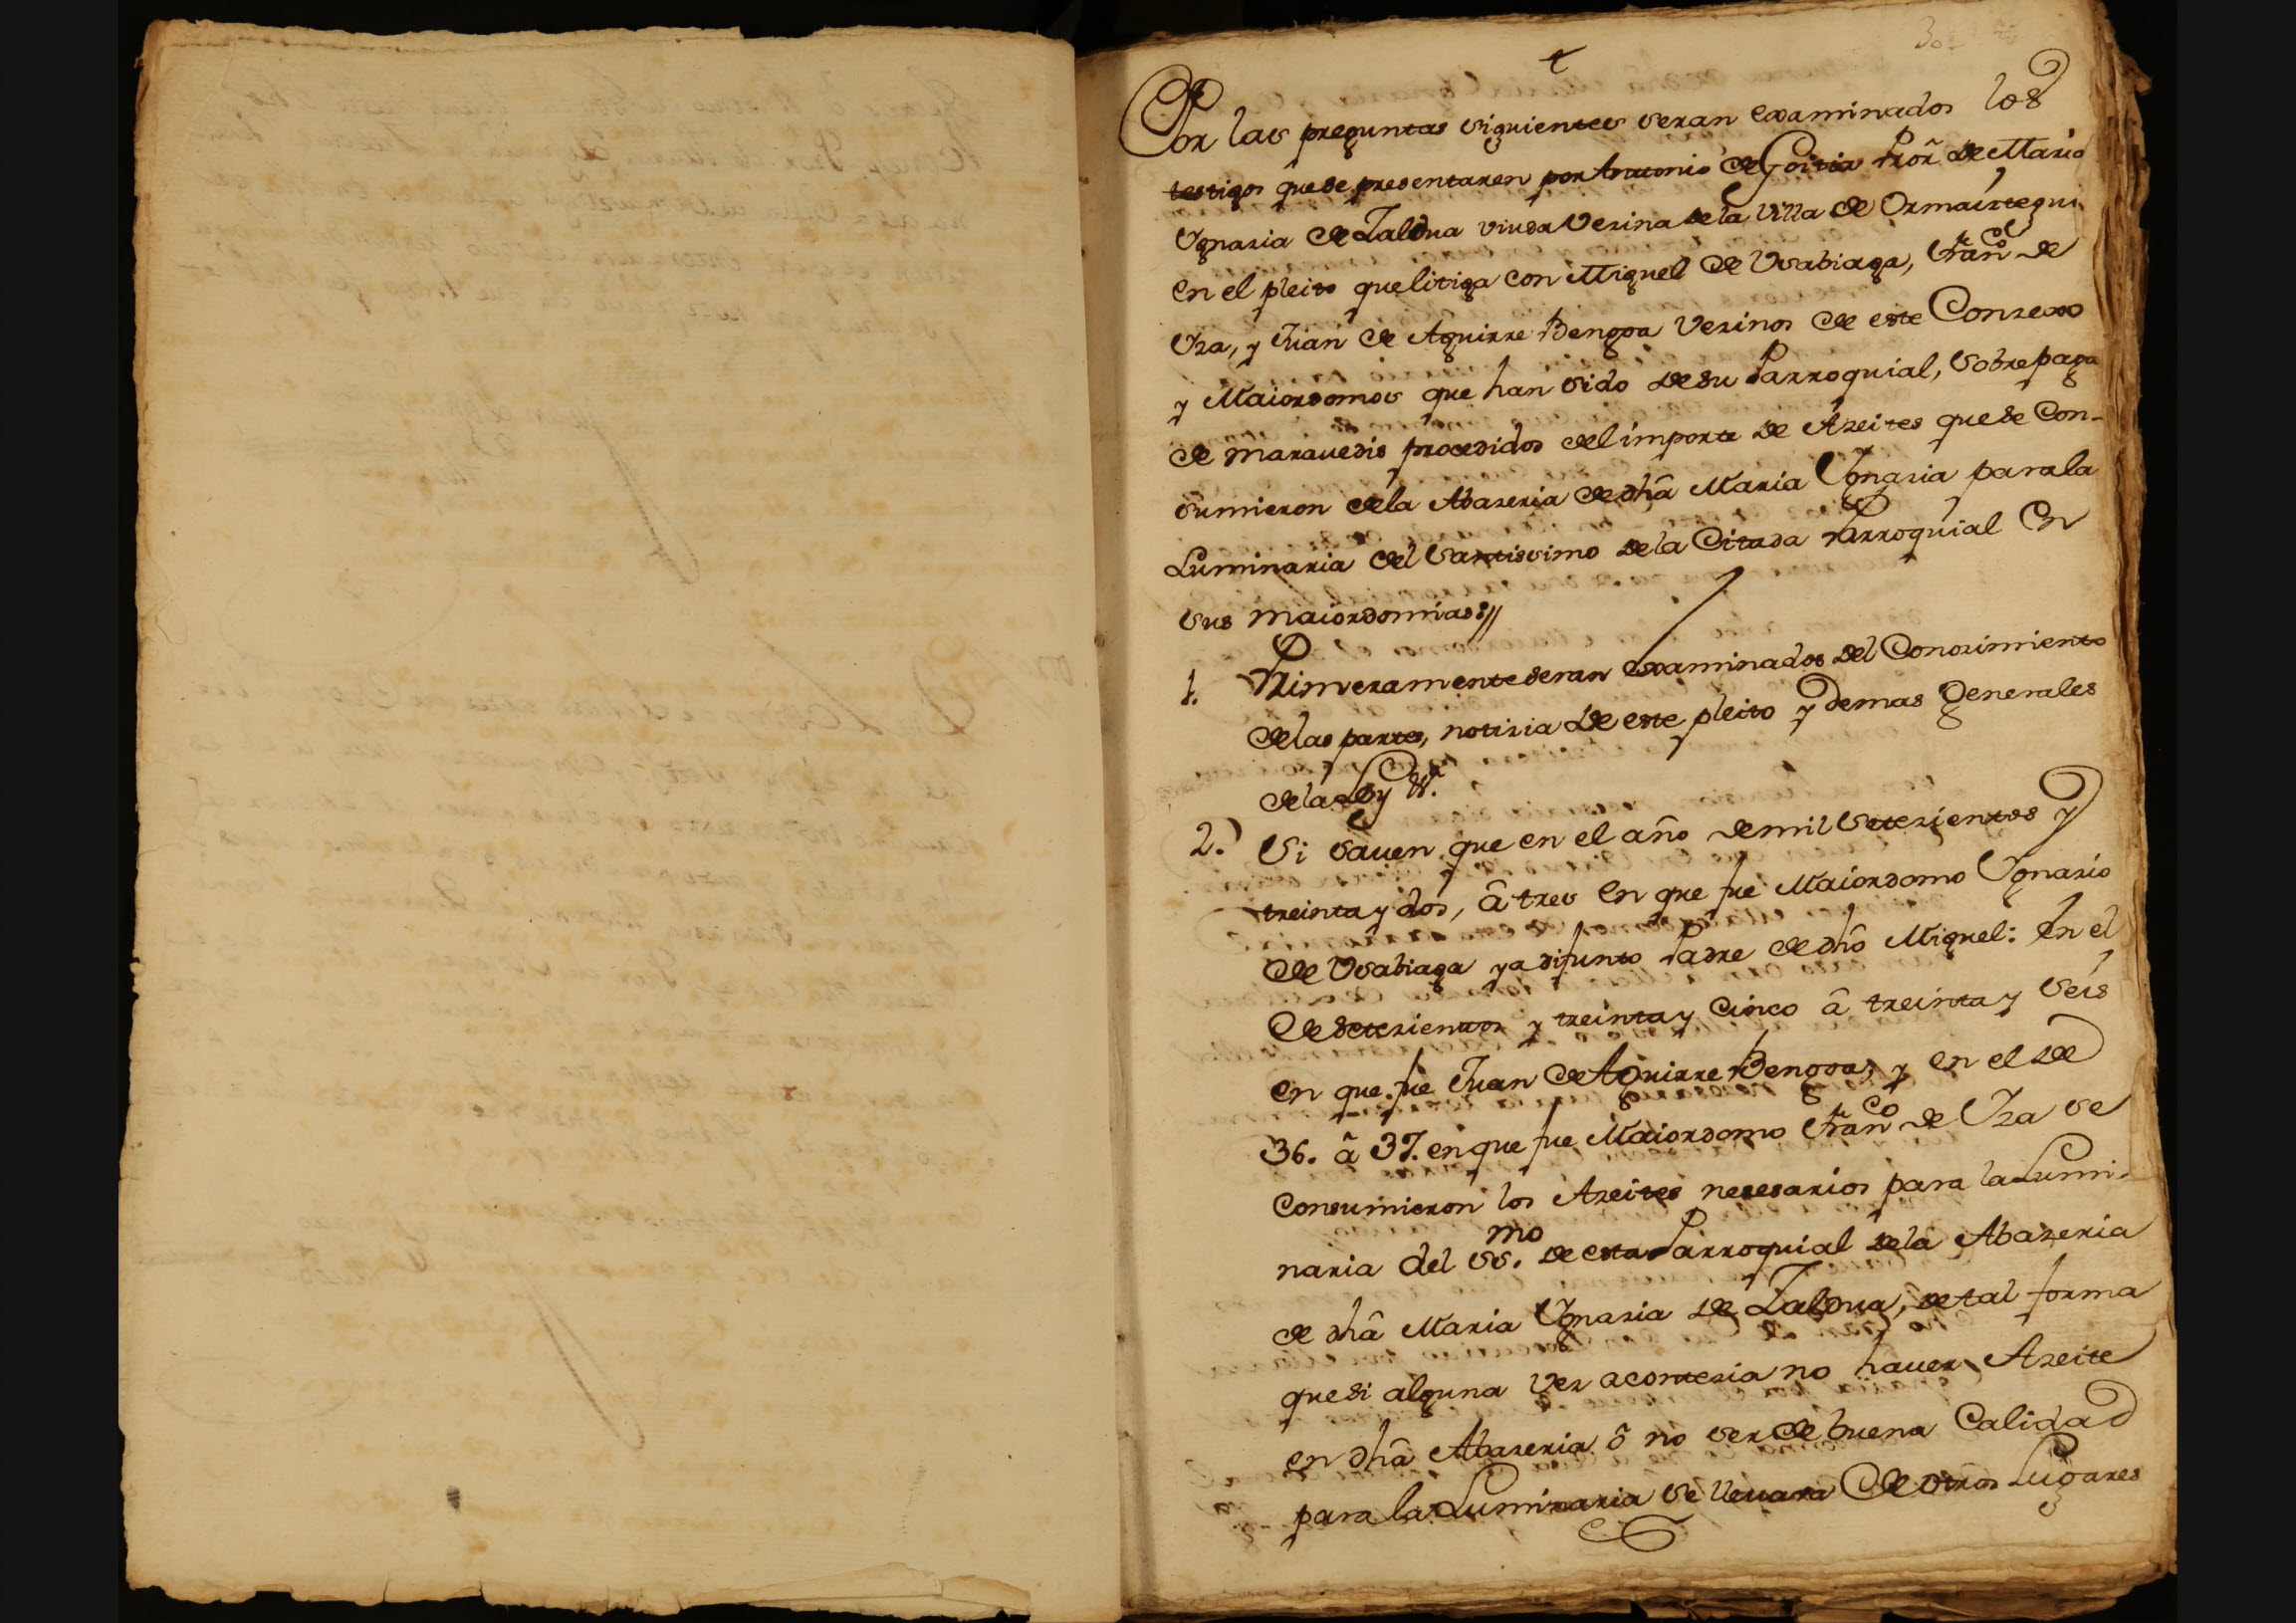 30
Por las preguntas siguientes seran examinados los
testigos que se presentaren por Antonio de Goitia Prõr de Maria
Ygnazia de Zaldua viuda Vezina de la Villa de Ormaiztegui
en el pleito que litiga con Miguel de Usabiaga, Franco de
Yza, y Juan de Aguirre Bengoa Vezinos de este Conzexo
y Maiordomos que han sido de su Parroquial, sobre paga
de maravedis procedidos del importe de Azeites que se Con-
sumieron de la Abazeria de dhã Maria Ygnazia para la
Luminaria del Santissimo de la Citada Parroquial en
sus maiordomias//
1. Primeramente seran examinados del Conozimiento
de las partes, notizia de este pleito y demas Generales
de la Ley &a.
2. Si sauen que en el año de mil setezientos y
treinta y dos, â tres en que fue Maiordomo Ygnazio
de Usabiaga ya difunto Padre de dhõ Miguel: En el
de setezientos y treinta y Cinco â treinta y seis
en que fue Juan de Aguirre Bengoa; y en el de
36. â 37. en que fue Maiordomo Franco de Yza se
Consumieron los Azeites nezesarios para la Lumi-
naria del SSmo. de esta Parroquial de la Abazeria
de dhã Maria Ygnazia de Zaldua, de tal forma
que si alguna vez acontezia no hauer Azeite
en dhã Abazeria ô no ser de buena Calidad
para la Luminaria se lleuara de otros Lugares